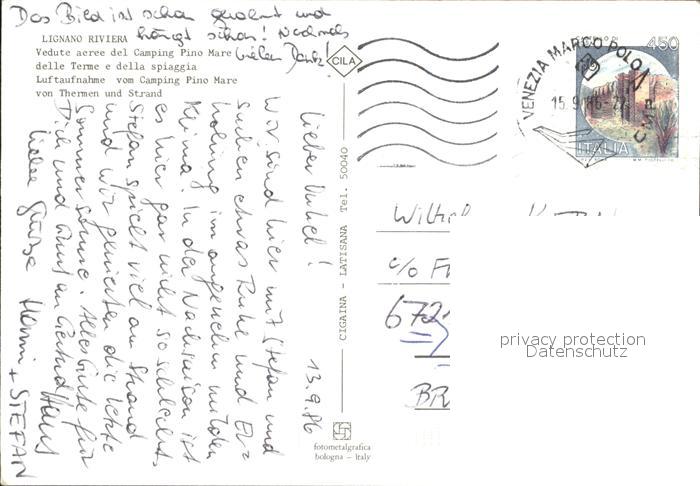 Das Bild ist schon gerahmt und
hängt schon! Nochmals
vielen Dank!
LIGNANO RIVIERA
Vedute aeree del Camping Pino Mare
delle Terme e della spiaggia
Luftaufnahme vom Camping Pino Mare
von Thermen und Strand
CILA
450
VENEZIA MARCO POLO
15.9.86
CMP
ITALIA
13.9.86
Lieber Onkel!
Wir sind hier mit Stefan und
suchen etwas Ruhe und Er=
holung im angenehm milden
Klima. In der Nachsaison ist
es hier gar nicht so schlecht.
Stefan spielt viel am Strand
und wir genießen die letzte
Sommersonne. Alles Gute für
Dich und
Liebe Grüße
+ STEFAN
CIGAINA - LATISANA Tel. 50040
c/o
672
BR
fotometalgrafica
bologna - Italy
privacy protection
Datenschutz